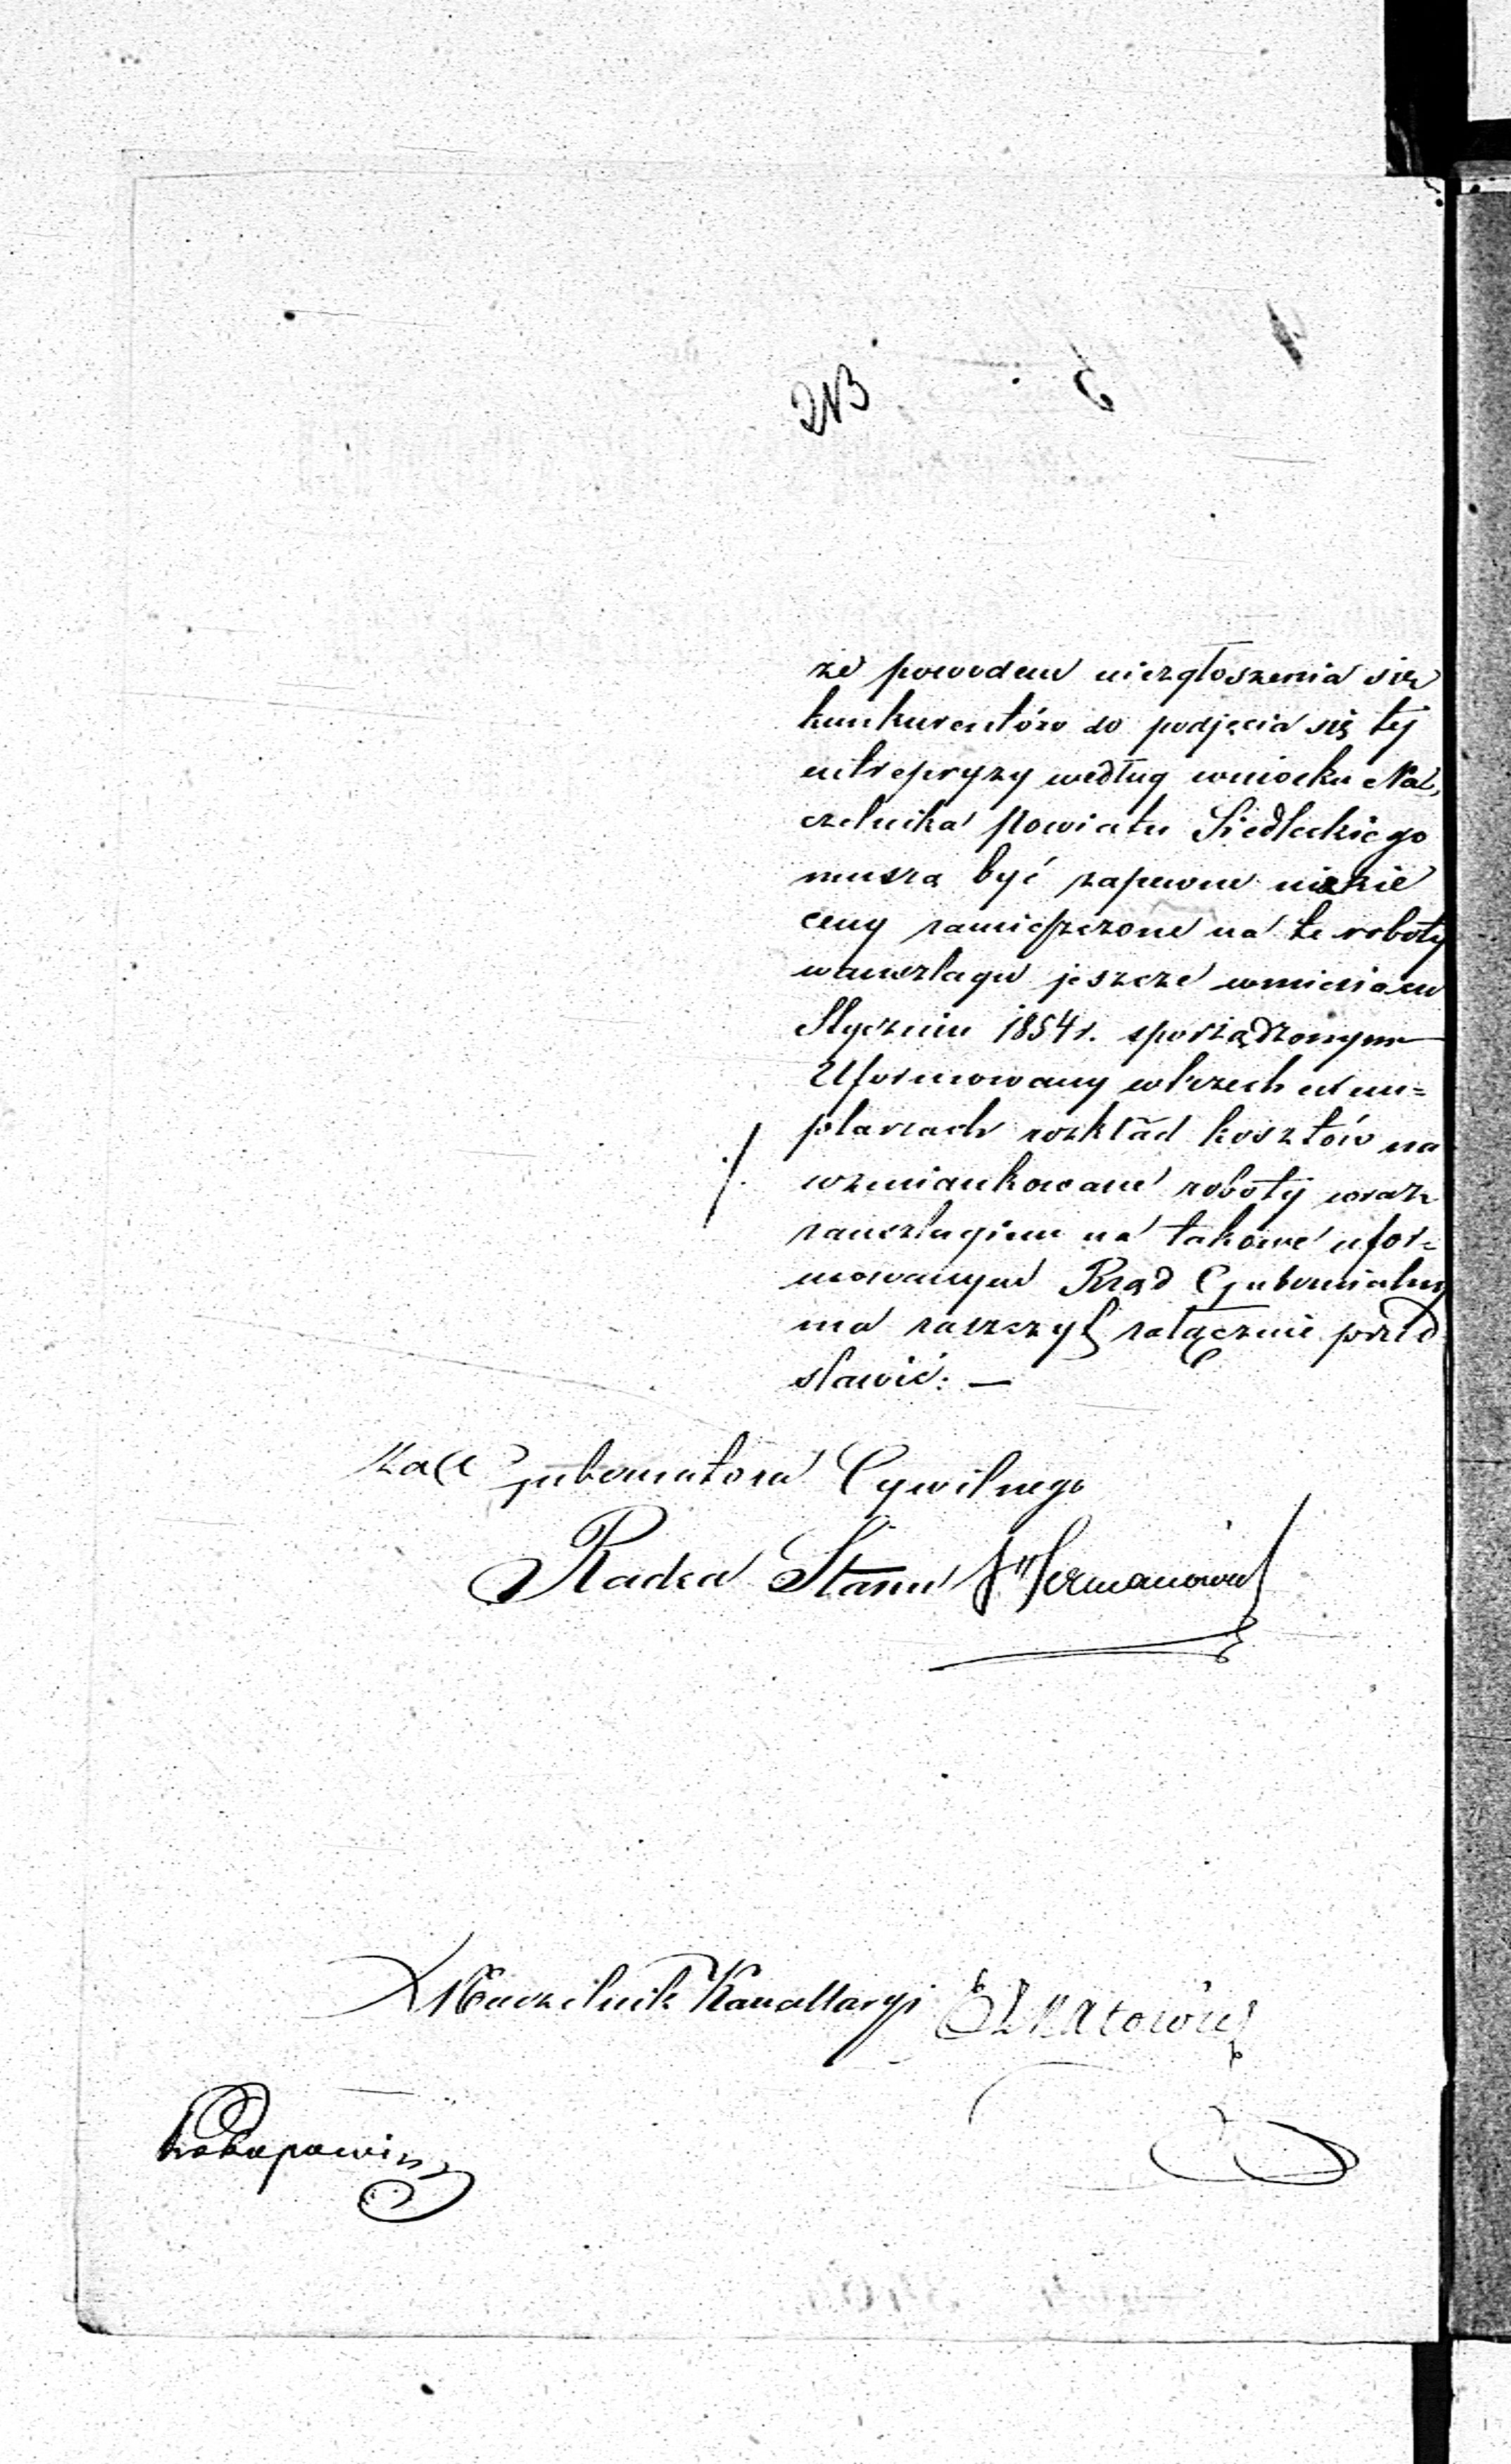 że powodem niezgłoszenia się
konkurentów do podjęcia się tej
entrepryzy według wniosku Na,
czelnika Powiatu Siedleckiego
muszą być zapewne niskie
ceny zamieszczone na te roboty
wanszlagu jeszcze wmiesiącu
Styczniu 1854 r. sporządzonym
Uformowany wtrzech exem=
plarzach rozkład kosztów na
wzmiankowane roboty wraz
zanszlagiem na takowe ufor=
mowanym Rząd Gubernialny
ma zaszczyt załącznie przed
stawić. —
Gubernatora Cywilnego
Radca Stanu
Naczelnik Kancellaryi